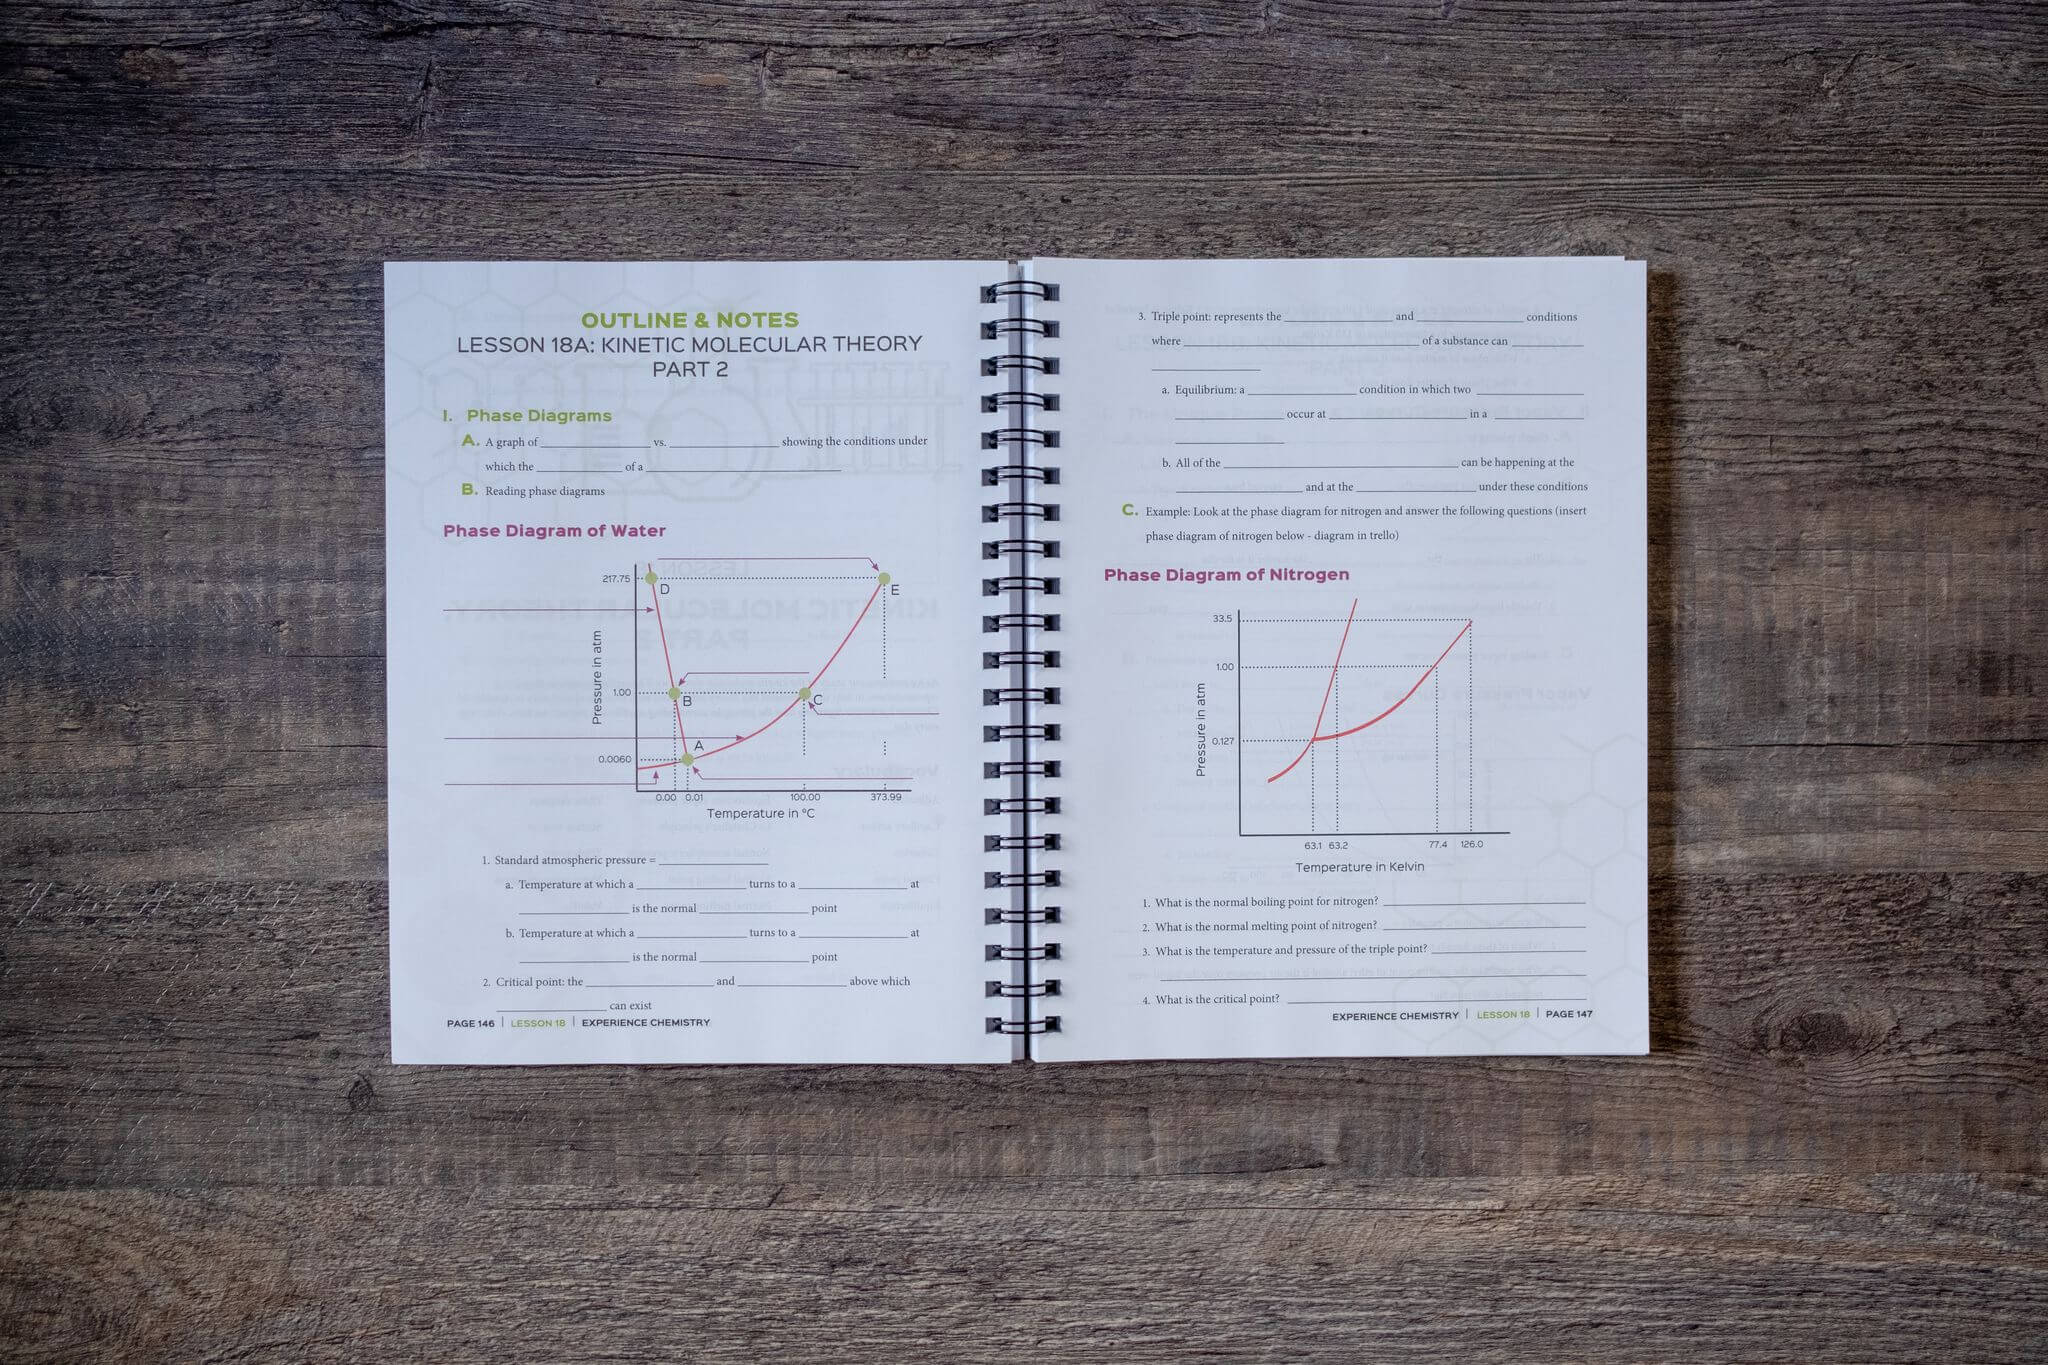 OUTLINE & NOTES
LESSON 18A: KINETIC MOLECULAR THEORY
PART 2
I. Phase Diagrams
A. A graph of ____ vs. ____ showing the conditions under
which the ____ of a ____
B. Reading phase diagrams
Phase Diagram of Water
217.75
D
E
1.00
B
C
A
0.0060
0.00 0.01 100.00 373.99
Pressure in atm
Temperature in °C
1. Standard atmospheric pressure = ____
a. Temperature at which a ____ turns to a ____ at
____ is the normal ____ point
b. Temperature at which a ____ turns to a ____ at
____ is the normal ____ point
2. Critical point: the ____ and ____ above which
____ can exist
PAGE 146 | LESSON 18 | EXPERIENCE CHEMISTRY
3. Triple point: represents the ____ and ____ conditions
where ____ of a substance can ____
____
a. Equilibrium: a ____ condition in which two ____
____ occur at ____ in a ____
____
b. All of the ____ can be happening at the
____ and at the ____ under these conditions
C. Example: Look at the phase diagram for nitrogen and answer the following questions (insert
phase diagram of nitrogen below - diagram in trello)
Phase Diagram of Nitrogen
33.5
1.00
0.127
Pressure in atm
63.1 63.2 77.4 126.0
Temperature in Kelvin
1. What is the normal boiling point for nitrogen? ____
2. What is the normal melting point of nitrogen? ____
3. What is the temperature and pressure of the triple point? ____
____
4. What is the critical point? ____
EXPERIENCE CHEMISTRY | LESSON 18 | PAGE 147